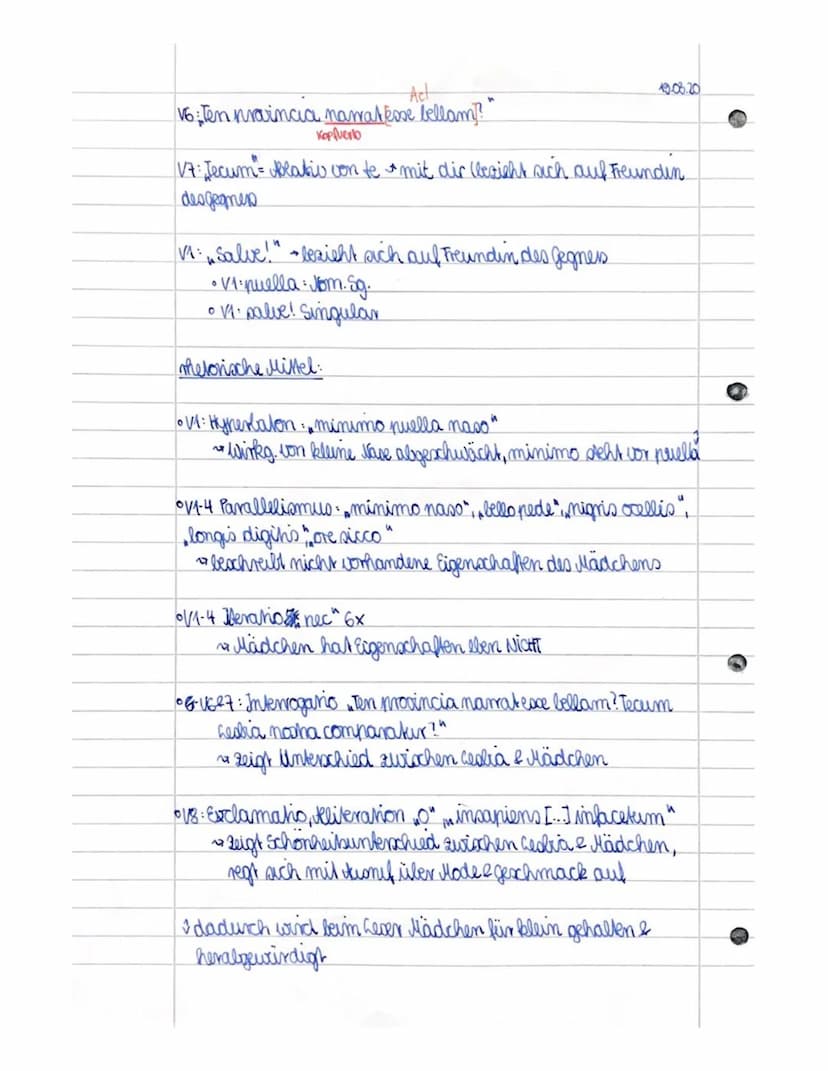 AcI
19.08.20
V6: „Ten provincia narrat [esse bellam]?"
Kopfverb
V7: „Tecum" = Ablativ von te → mit dir (bezieht sich auf Freundin
des Gegners
V1: „Salve!" → bezieht sich auf Freundin des Gegners
• V1: puella: Nom. Sg.
• V1: salve! Singular
rhetorische Mittel:
• V1: Hyperbaton: „minimo puella naso"
↝ Wirkg. von kleine Nase abgeschwächt, minimo steht vor puella
• V1-4 Parallelismus: „minimo naso", „bello pede", „nigris ocellis",
„longis digitis", „ore sicco"
↝ beschreibt nicht vorhandene Eigenschaften des Mädchens
• V1-4 Iteratio „nec" 6x
↝ Mädchen hat Eigenschaften eben NICHT
• V6&7: Interrogatio „Ten provincia narrat esse bellam? Tecum
Lesbia nostra comparatur?"
↝ zeigt Unterschied zwischen Lesbia & Mädchen
• V8: Exclamatio, Alliteration „O" „insapiens [...] infacetum"
↝ zeigt Schönheitsunterschied zwischen Lesbia & Mädchen,
regt sich mit Ausruf über Mode & Geschmack auf
↕ dadurch wird beim Leser Mädchen für klein gehalten &
herabgewürdigt